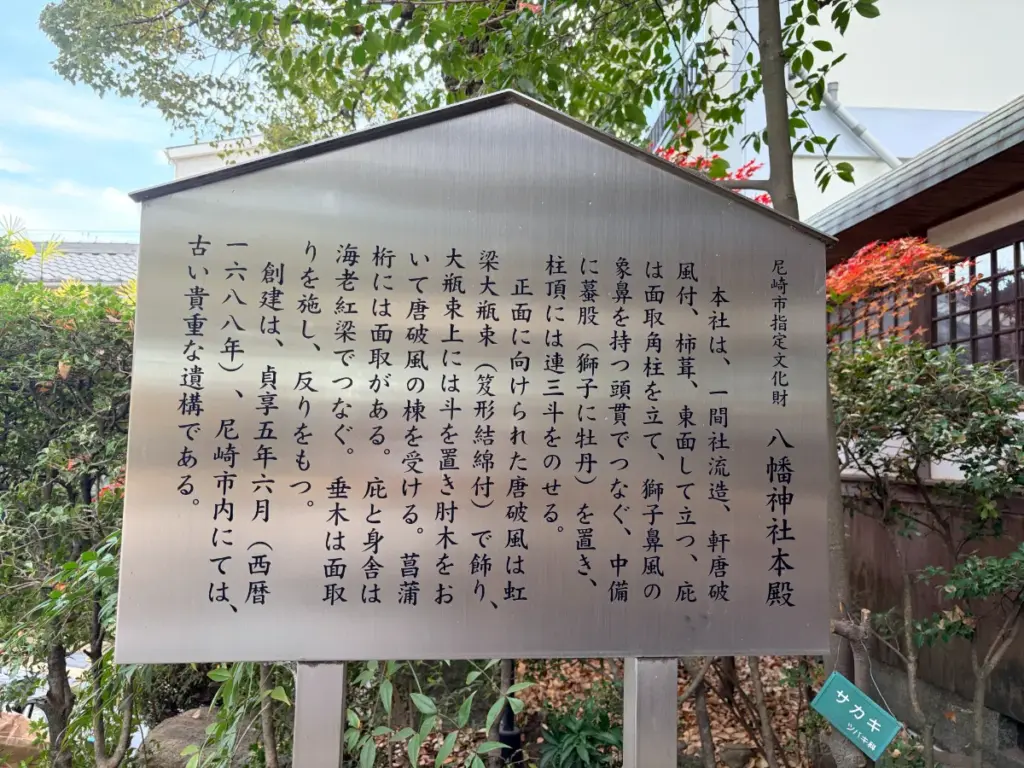 尼崎市指定文化財　八幡神社本殿
本社は、一間社流造、軒唐破
風付、柿葺、東面して立つ、庇
は面取角柱を立て、獅子鼻風の
象鼻を持つ頭貫でつなぐ、中備
に蟇股（獅子に牡丹）を置き、
柱頂には連三斗をのせる。
正面に向けられた唐破風は虹
梁大瓶束（笈形結綿付）で飾り、
大瓶束上には斗を置き肘木をお
いて唐破風の棟を受ける。菖蒲
桁には面取がある。庇と身舎は
海老紅梁でつなぐ。垂木は面取
りを施し、反りをもつ。
創建は、貞享五年六月（西暦
一六八八年）、尼崎市内にては、
古い貴重な遺構である。
サカキ
ツバキ科